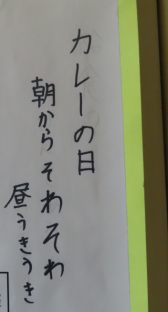 カレーの日
朝からそわそわ
昼うきうき